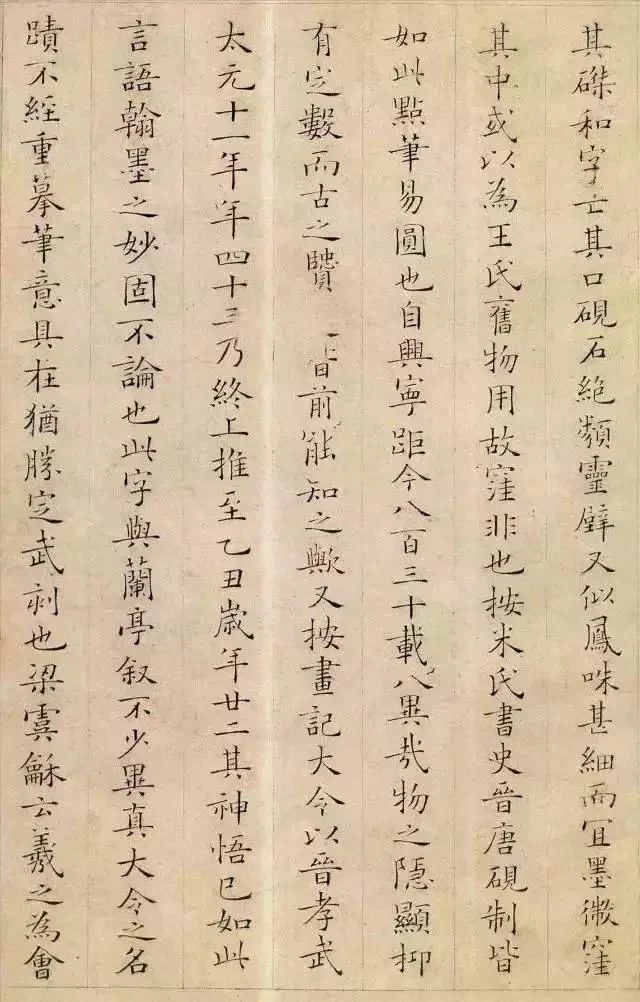 其磔和字亡其口硯石絶類靈璧又似鳳咮甚細而冝墨微窪
其中或以為王氏舊物用故窪非也按米氏書史晉唐硯制皆
如此點筆易圓也自興寧距今八百三十載八異哉物之隱顯抑
有定數而古之賢 前能知之歟又按畫記大令以晉孝武
太元十一年年四十三乃終上推至乙丑歲年廿二其神悟已如此
言語翰墨之妙固不論也此字與蘭亭叙不少異真大令之名
蹟不經重摹筆意具在猶勝定武刻也梁虞龢云羲之為會